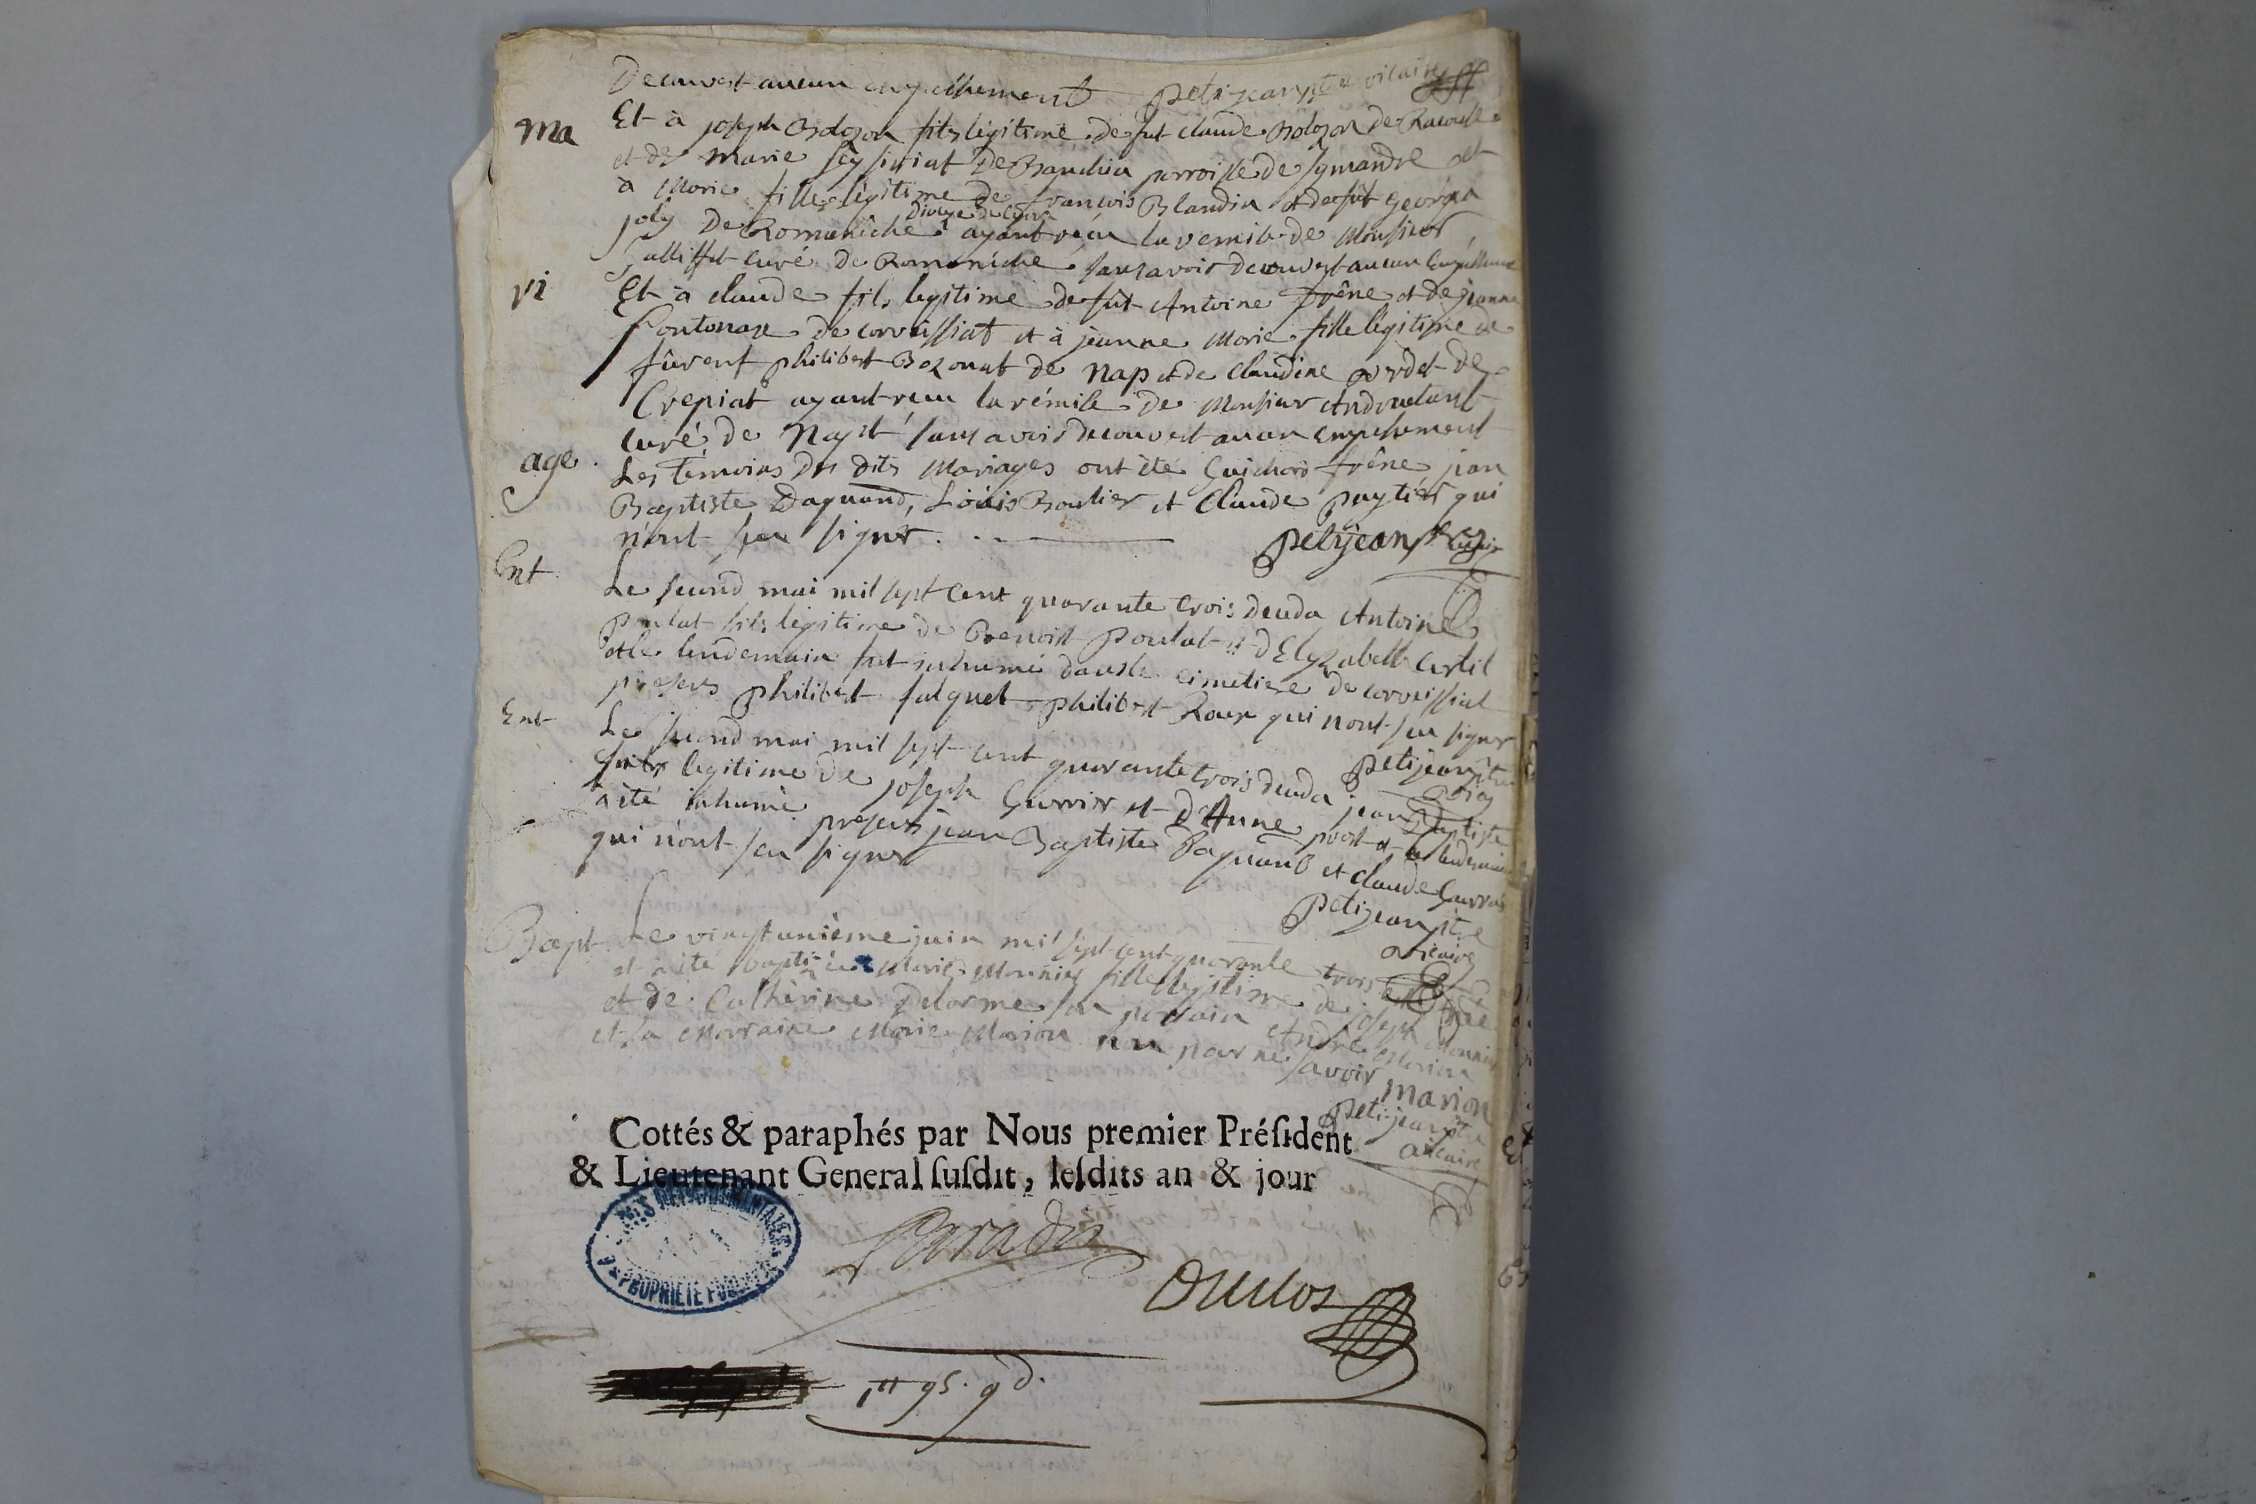 Decouvert aucun empêchement Petitjean ptre vicaire
ma
Et à joseph Bolozon fils légitime de fut claude Bolozon de Racouse
et de marie seysiriat de Bauchin parroisse de symandre et
à Marie fille légitime de françois Blandin et de fût Georgea
Dioceze de Lyon
joly De Romanêche ayant reçu la remise de Monsieur
curé de Romanêche sans avoir decouvert aucun empêchement
ri
Et à claude fils legitime de fût Antoine frêne et de jeanne
fontonax de corvéissiat et à jeanne Marie fille légitime de
fûrent philibert Bozonat de Nap et de Claudine verdet de
Crepiat ayant reçu la rémise de Monsieur
curé de Napt sans avoir decouvert aucun empechement
age
Les Temoins des dits Mariages ont été Guichard frêne jean
Baptiste Daguand, Loüis Boulier et Claude Puytier qui
n'ont seu signer. Petijean ptre vicaire
Ent
Le second mai mil sept cent quarante trois deceda Antoine
Poulat fils légitime de Benoist Poulat et d'Elyzabeth Curtil
et le lendemain fut inhumé dans le cimetiere de corveissiat
présens philibert falquet philibert Roux qui n'ont seu signer
Petijean ptre
vicr
Ent
Le second mai mil sept cent quarante trois deceda jean Baptiste
fils legitime de joseph Guerrier et d'Anne et le lendemain
a été inhumé présens jean Baptiste Daguand et claude Guerrier
qui n'ont seu signer
Petijean ptre
vicaire
Bapt
Le vingt unième juin mil sept cent quarante trois est née
et a été baptisée Marie Monnier fille légitime de joseph Monnier
et de Catherine Delorme son parrain André Marion
et sa Marraine Marie Marion non par ne savoir
Marion
Petijean ptre
vicaire
Cottés & paraphés par Nous premier Préſident
& Lieutenant General ſuſdit, leſdits an & jour
PROPRIETE PUBLIQUE
Paradis
Duclos
1tt 9s. 9d.